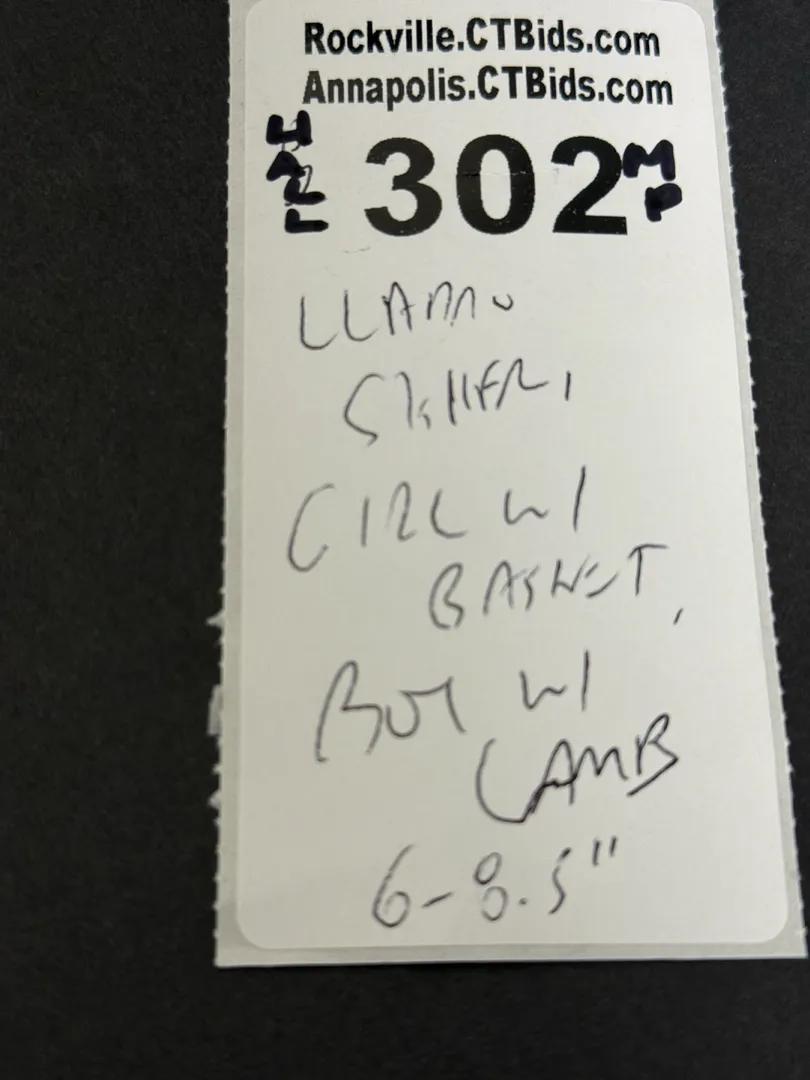 Rockville.CTBids.com
Annapolis.CTBids.com
302 MP
LLADRO
GIRL W/
BASKET,
BOY W/
LAMB
6-8.5"